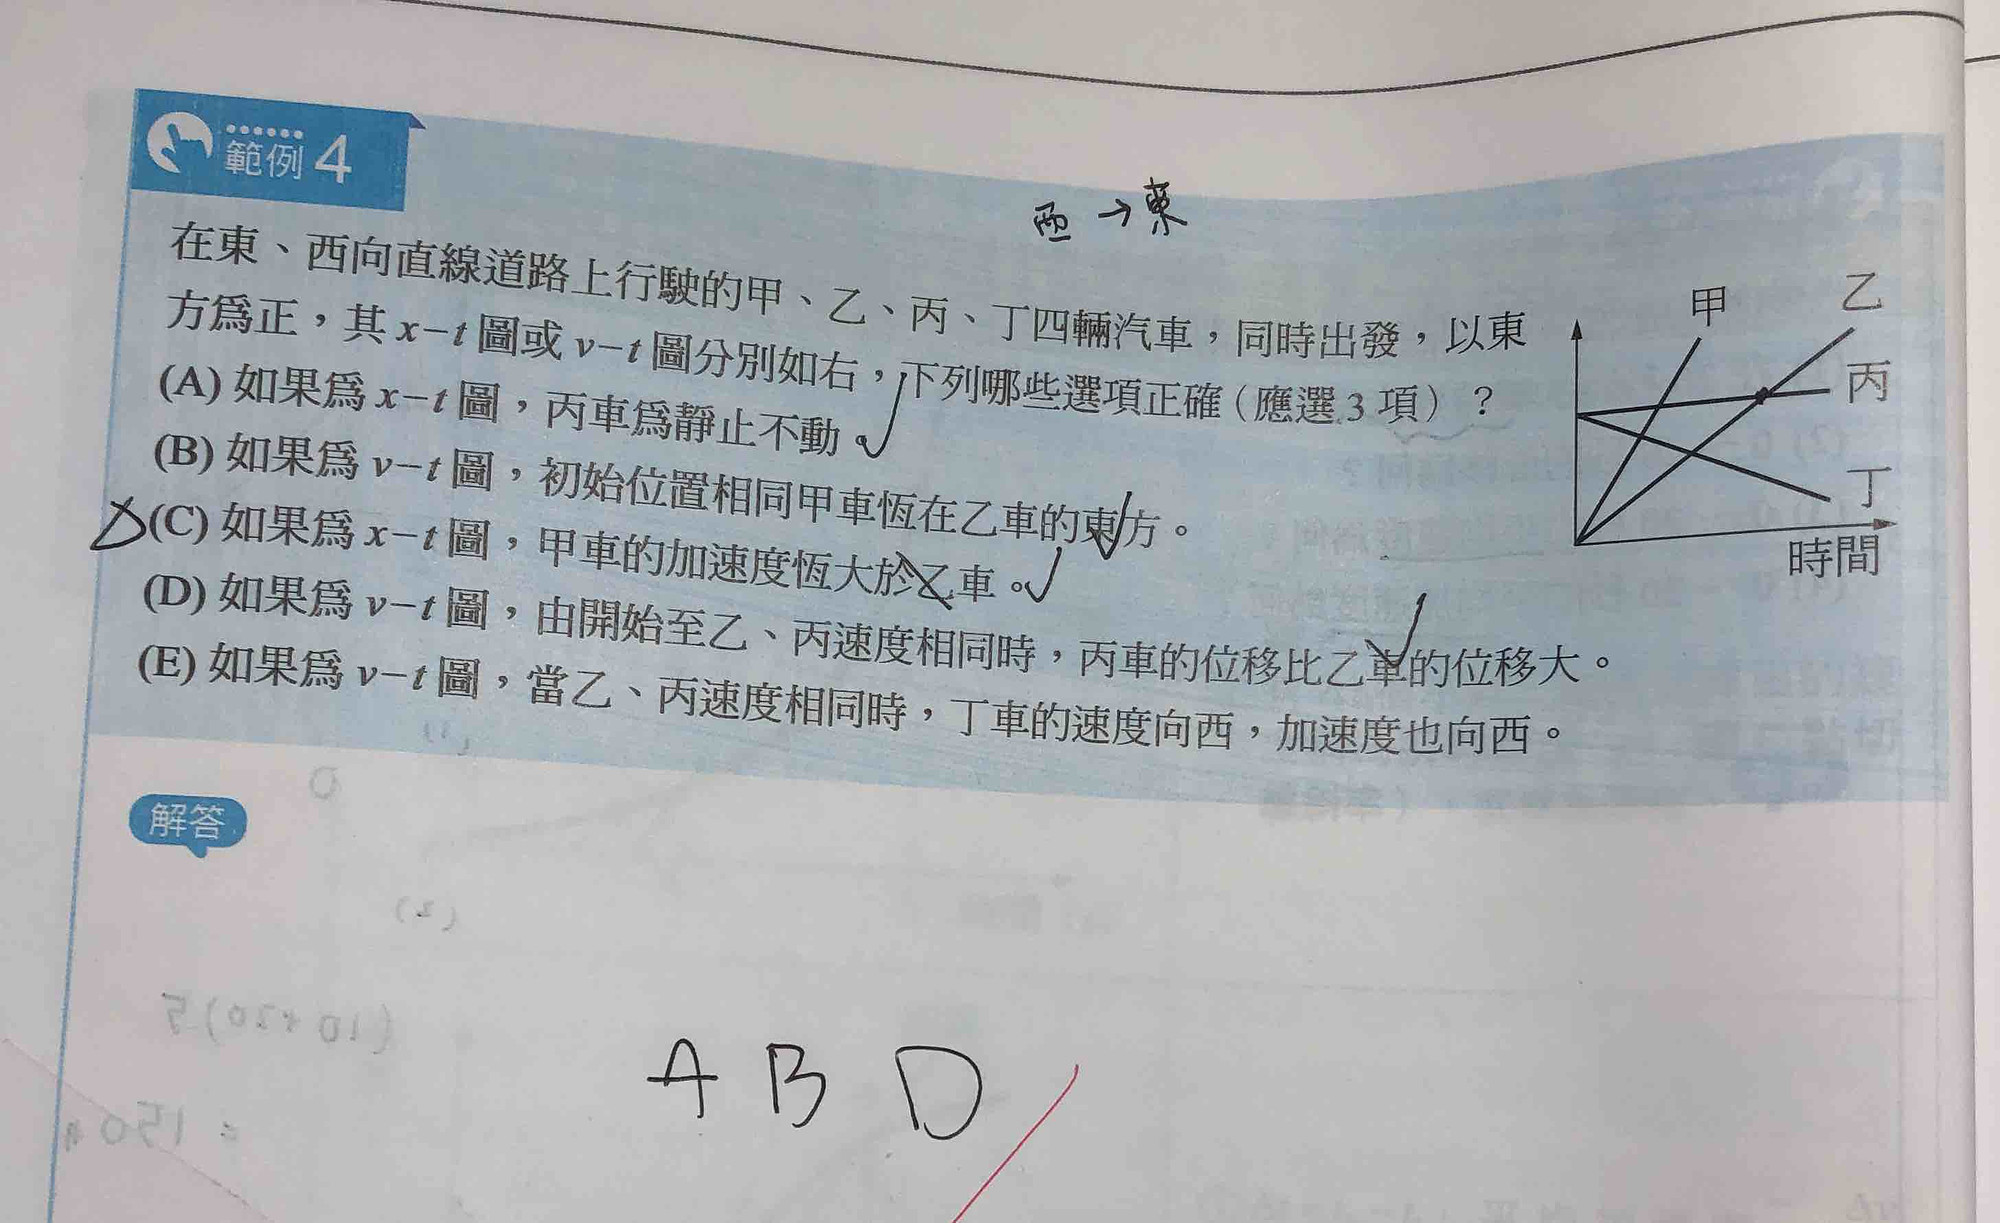 範例 4
西 → 東
在東、西向直線道路上行駛的甲、乙、丙、丁四輛汽車，同時出發，以東
方為正，其 x－t 圖或 v－t 圖分別如右，下列哪些選項正確（應選 3 項）？
(A) 如果為 x－t 圖，丙車為靜止不動。
(B) 如果為 v－t 圖，初始位置相同甲車恆在乙車的東方。
(C) 如果為 x－t 圖，甲車的加速度恆大於乙車。
(D) 如果為 v－t 圖，由開始至乙、丙速度相同時，丙車的位移比乙車的位移大。
(E) 如果為 v－t 圖，當乙、丙速度相同時，丁車的速度向西，加速度也向西。
甲
乙
丙
丁
時間
解答
A B D